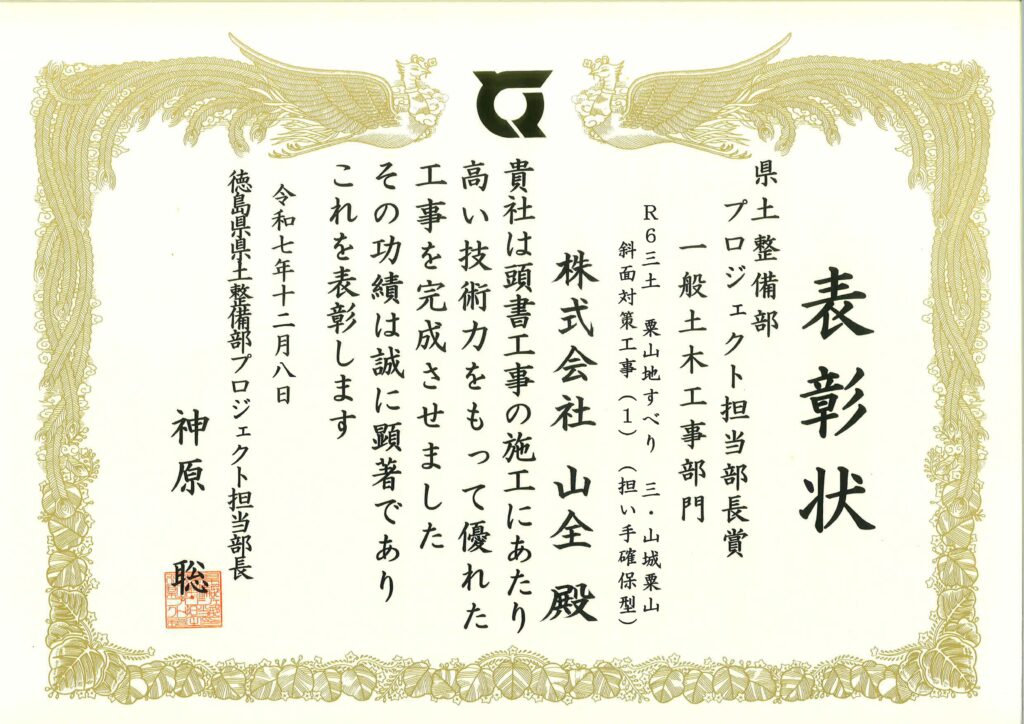 表彰状
県土整備部
プロジェクト担当部長賞
一般土木工事部門
R6三土 粟山地すべり 三・山城粟山
斜面対策工事(1)(担い手確保型)
株式会社 山全 殿
貴社は頭書工事の施工にあたり
高い技術力をもって優れた
工事を完成させました
その功績は誠に顕著であり
これを表彰します
令和七年十二月八日
徳島県県土整備部プロジェクト担当部長
神原 聡